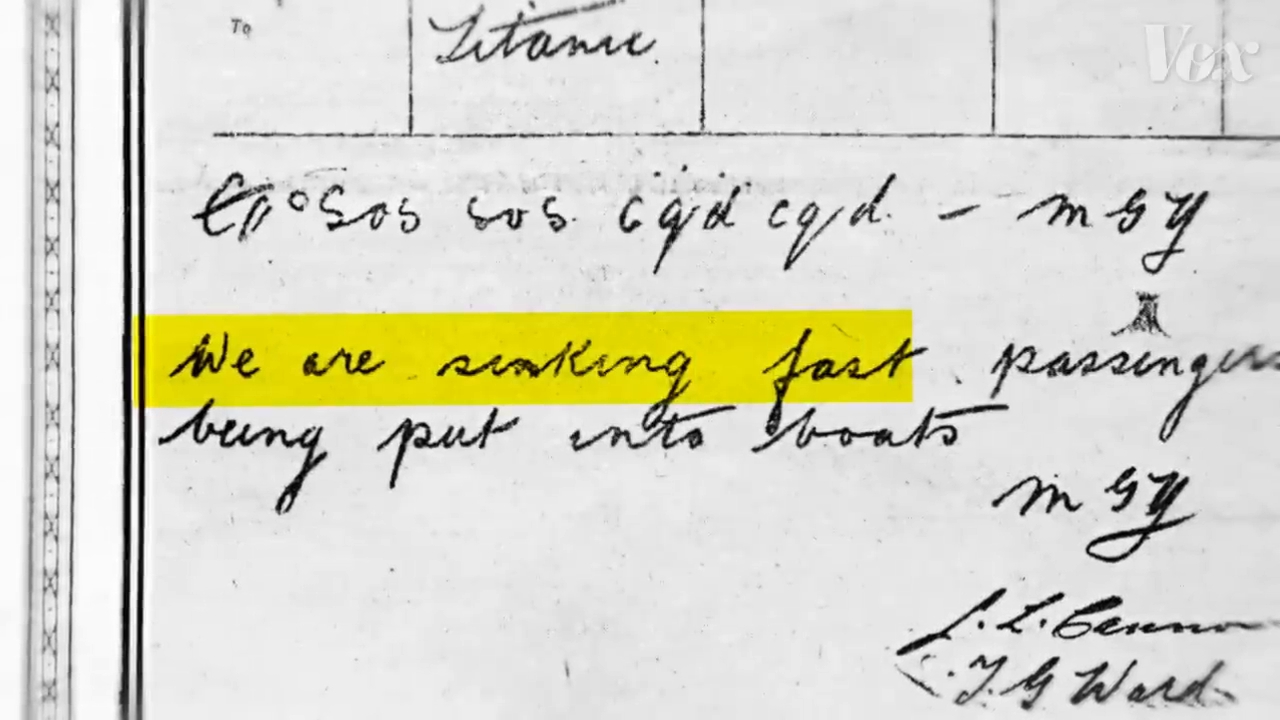 To
Titanic.
Vox
SOS SOS. cqd cqd. - MGY
We are sinking fast. passengers
being put into boats
MGY
T. G. Ward.